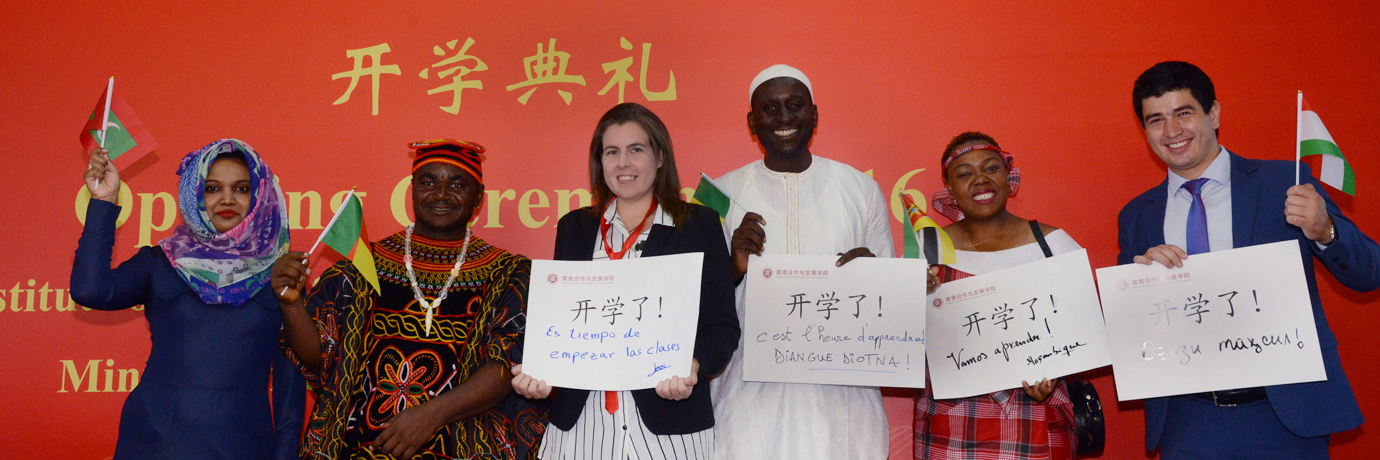 开学典礼
Opening Ceremony 2016
Min
南南合作与发展学院
开学了!
Es tiempo de
empezar las clases
南南合作与发展学院
开学了!
C'est l'heure d'apprendre!
DIANGUE DIOTNA!
南南合作与发展学院
开学了!
Vamos aprender!
Moçambique
南南合作与发展学院
开学了!